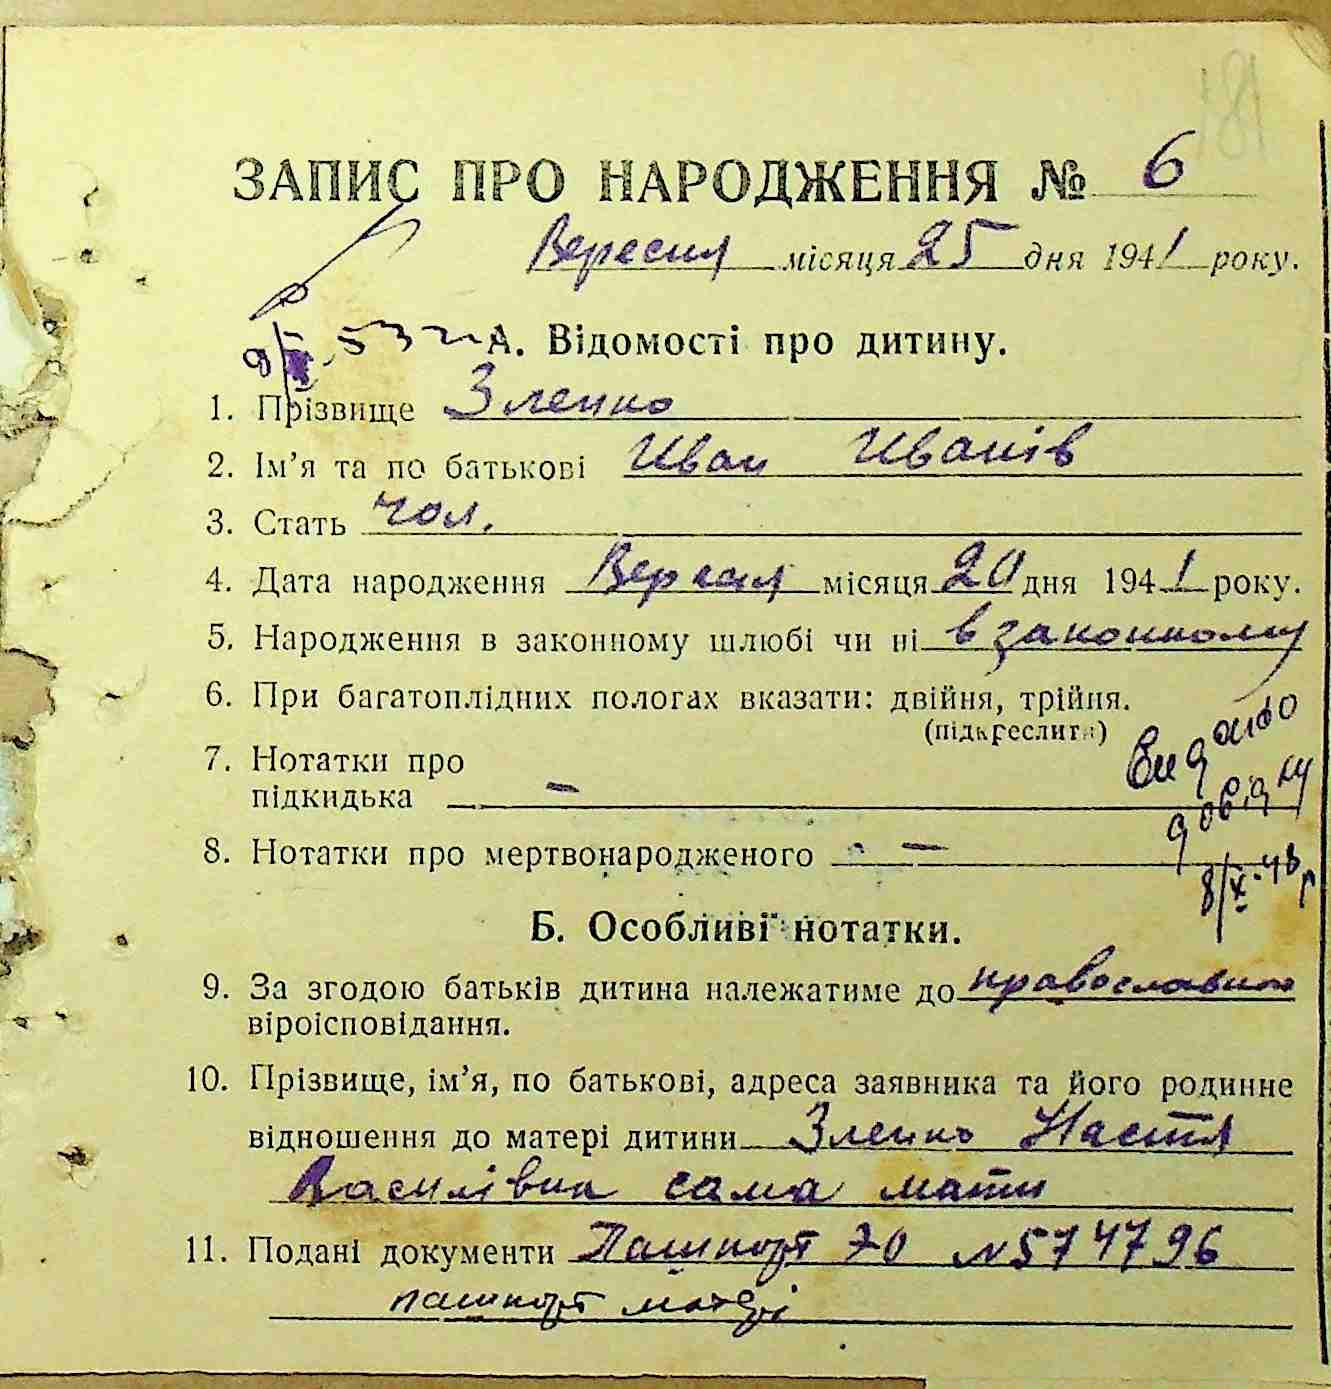 181
ЗАПИС ПРО НАРОДЖЕННЯ № 6
Вересня місяця 25 дня 1941 року.
А. Відомості про дитину.
1. Прізвище Зленко
2. Ім’я та по батькові Иван Иванів
3. Стать чол.
4. Дата народження Вересня місяця 20 дня 1941 року.
5. Народження в законному шлюбі чи ні в законному
6. При багатоплідних пологах вказати: двійня, трійня.
(підкреслити)
Видано
7. Нотатки про
підкидька —
довідку
8. Нотатки про мертвонародженого —
8/X-48 р
Б. Особливі нотатки.
9. За згодою батьків дитина належатиме до православного
віроісповідання.
10. Прізвище, ім’я, по батькові, адреса заявника та його родинне
відношення до матері дитини Зленко Настя
Василівна сама мати
11. Подані документи Пашпорт № 574796
пашпорт матері